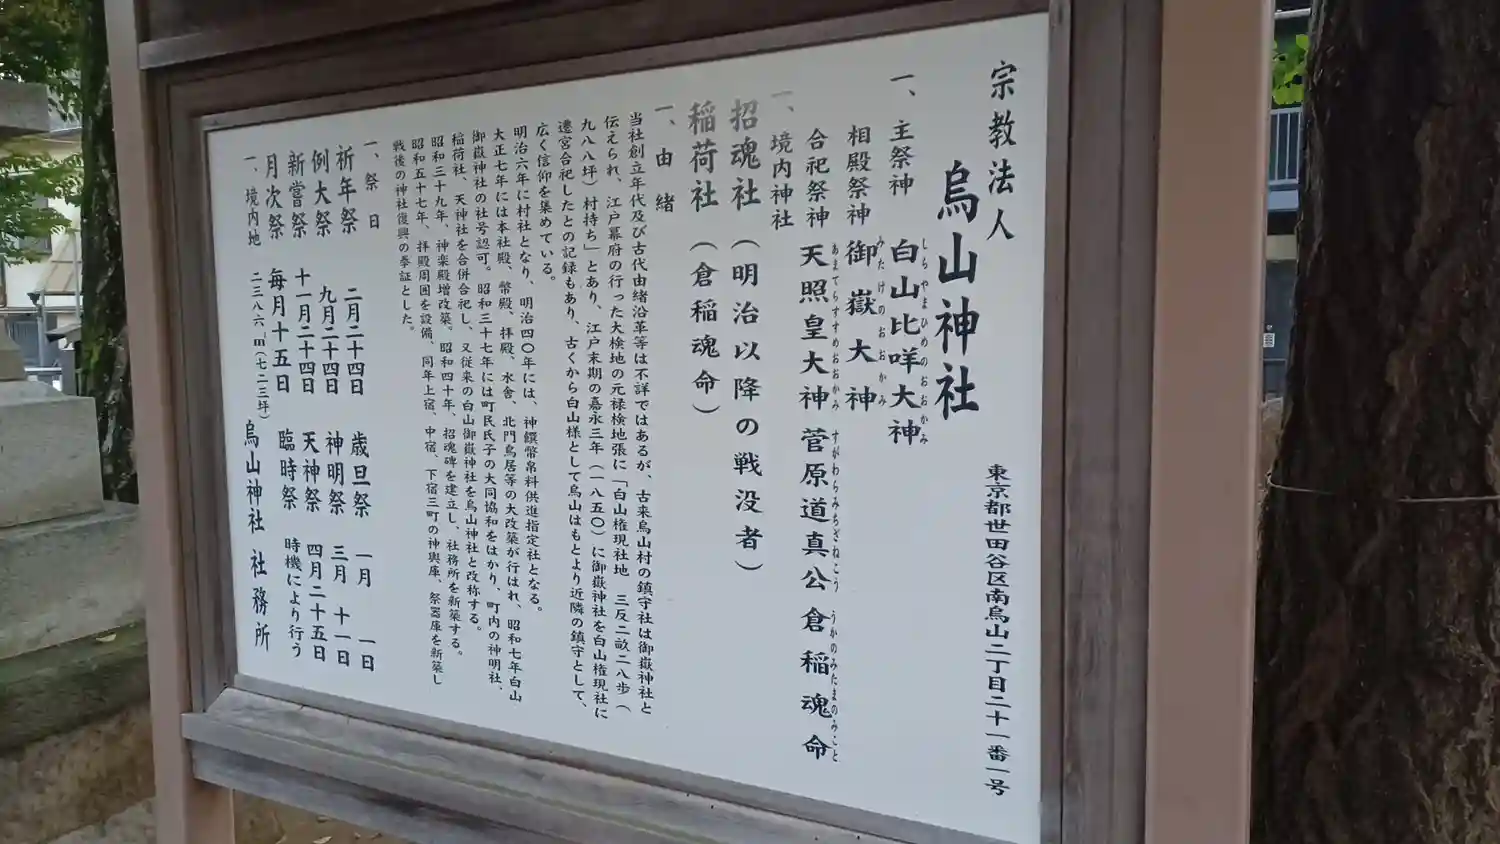 宗教法人
烏山神社
東京都世田谷区南烏山二丁目二十一番一号
一、主祭神 白山比咩大神
しらやまひめのおおかみ
相殿祭神 御嶽大神
みたけのおおかみ
合祀祭神 天照皇大神 菅原道真公 倉稲魂命
あまてらすすめおおかみ すがわらみちざねこう うかのみたまのみこと
一、境内神社
招魂社(明治以降の戦没者)
稲荷社(倉稲魂命)
一、由緒
当社創立年代及び古代由緒沿革等は不詳ではあるが、古来烏山村の鎮守社は御嶽神社と
伝えられ、江戸幕府の行った大検地の元禄検地張に「白山権現社地 三反二畝二八歩(
九八八坪)村持ち」とあり、江戸末期の嘉永三年(一八五〇)に御嶽神社を白山権現社に
遷宮合祀したとの記録もあり、古くから白山様として烏山はもとより近隣の鎮守として、
広く信仰を集めている。
明治六年に村社となり、明治四〇年には、神饌幣帛料供進指定社となる。
大正七年には本社殿、幣殿、拝殿、水舎、北門鳥居等の大改築が行はれ、昭和七年白山
御嶽神社の社号認可。昭和三十七年には町民氏子の大同協和をはかり、町内の神明社、
稲荷社、天神社を合併合祀し、又従来の白山御嶽神社を烏山神社と改称する。
昭和三十九年、神楽殿増改築。昭和四十年、招魂碑を建立し、社務所を新築する。
昭和五十七年、拝殿周囲を設備、同年上宿、中宿、下宿三町の神輿庫、祭器庫を新築し
戦後の神社復興の挙証とした。
一、祭日
祈年祭 二月二十四日 歳旦祭 一月 一日
例大祭 九月二十四日 神明祭 三月 十一日
新嘗祭 十一月二十四日 天神祭 四月二十五日
月次祭 毎月十五日 臨時祭 時機により行う
一、境内地 二三八六.㎡(七二三坪) 烏山神社 社務所